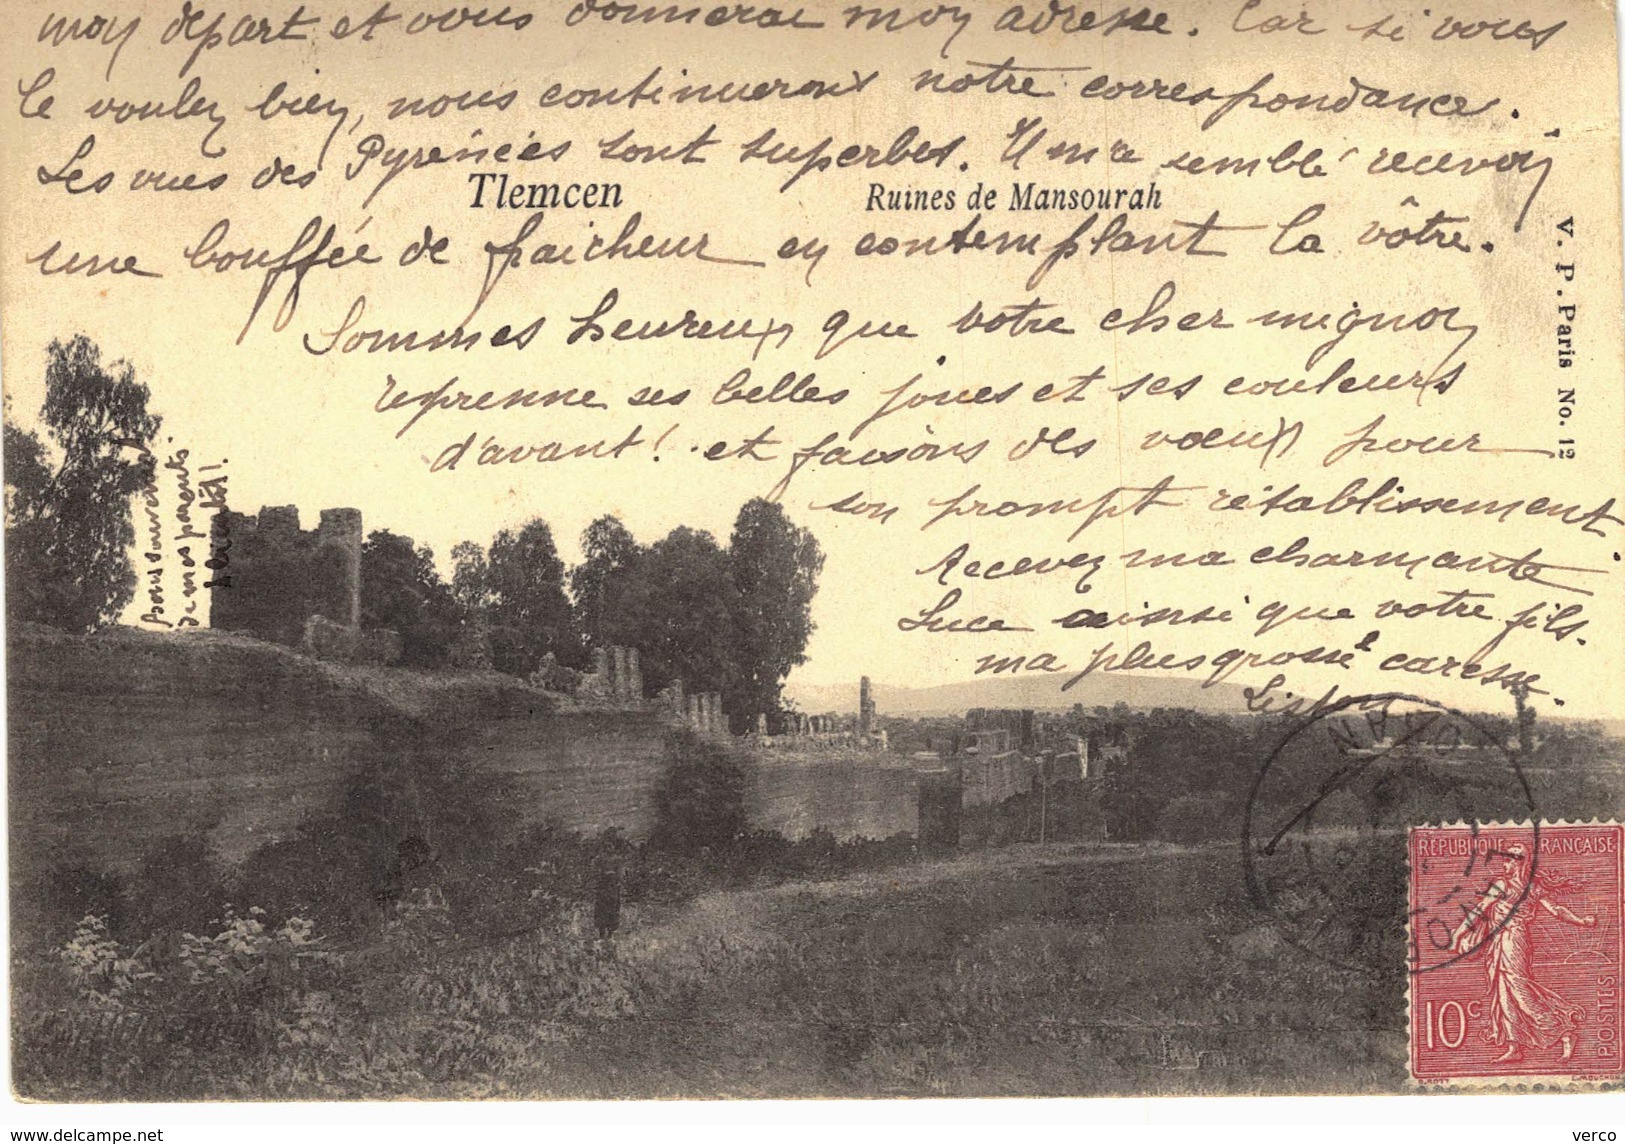 moy départ et vous donnerai moy adresse. Car si vous
le voulez biey, nous continuerons notre correspondance.
Les vues des Pyrénées sont superbes. Il m'a semblé recevoir
Tlemcen
Ruines de Mansourah
une bouffée de fraicheur en contemplant la vôtre.
Sommes heureux que votre cher mignoy
reprenne ses belles joues et ses couleurs
d'avant! et faisons des vœux pour
son prompt rétablissement.
Recevez ma charmante
Luce ainsi que votre fils.
ma plus grosse caresse.
bon souvenir
de mes parents.
V. P. Paris No. 12
ORAN
ORAN
RÉPUBLIQUE FRANÇAISE
10c
POSTES
O. ROTY
L. MOUCHON
www.delcampe.net
verco